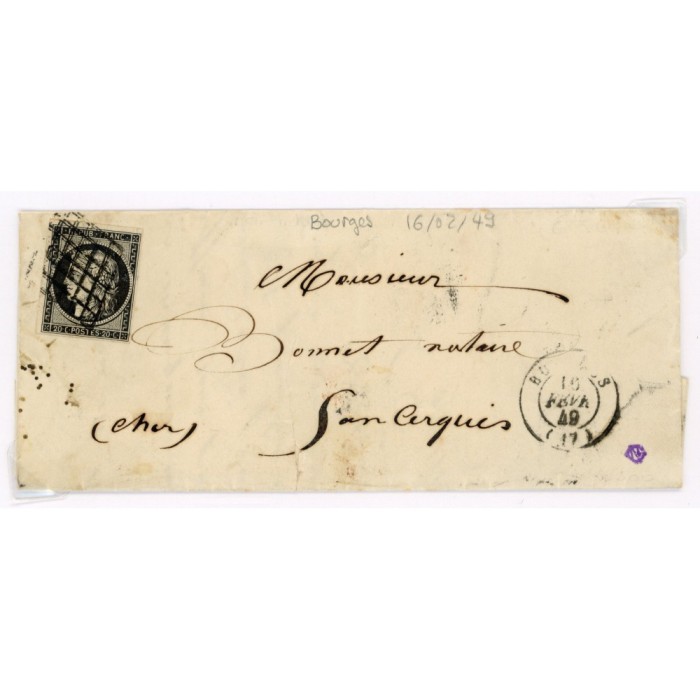 Bourges 16/02/49
REPUB. FRANC.
20 C POSTES 20 C
Monsieur
Bonnet notaire
(cher) Sancergues
BOURGES
16
FEVR.
49
(17)